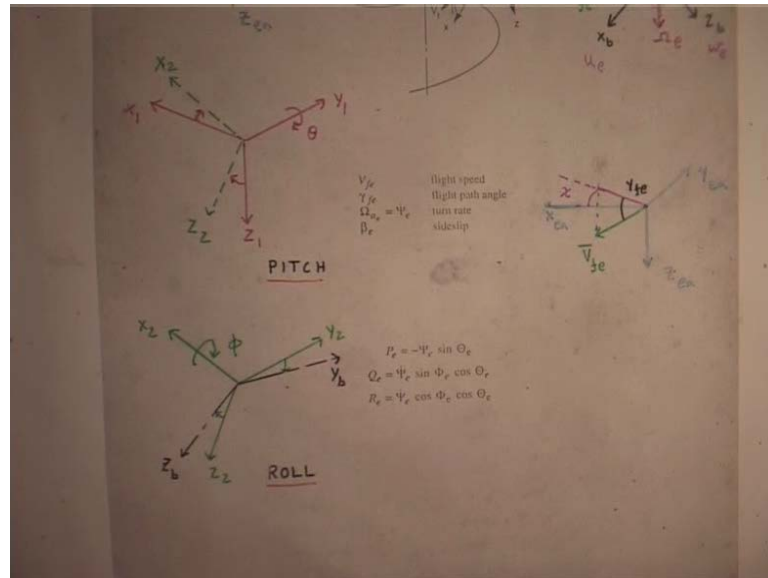 Z_en
x
z
x_b
Z_b
u_e
Ω_e
w_e
X_2
X_1
Y_1
θ
Z_2
Z_1
PITCH
V_fe flight speed
γ_fe flight path angle
= Ψ̇_e turn rate
β_e sideslip
χ
γ_fe
x_en
V̄_fe
X_2
Φ
Y_2
Y_b
Z_b
Z_2
ROLL
P_e = −Ψ̇_e sin Θ_e
Q_e = Ψ̇_e sin Φ_e cos Θ_e
R_e = Ψ̇_e cos Φ_e cos Θ_e